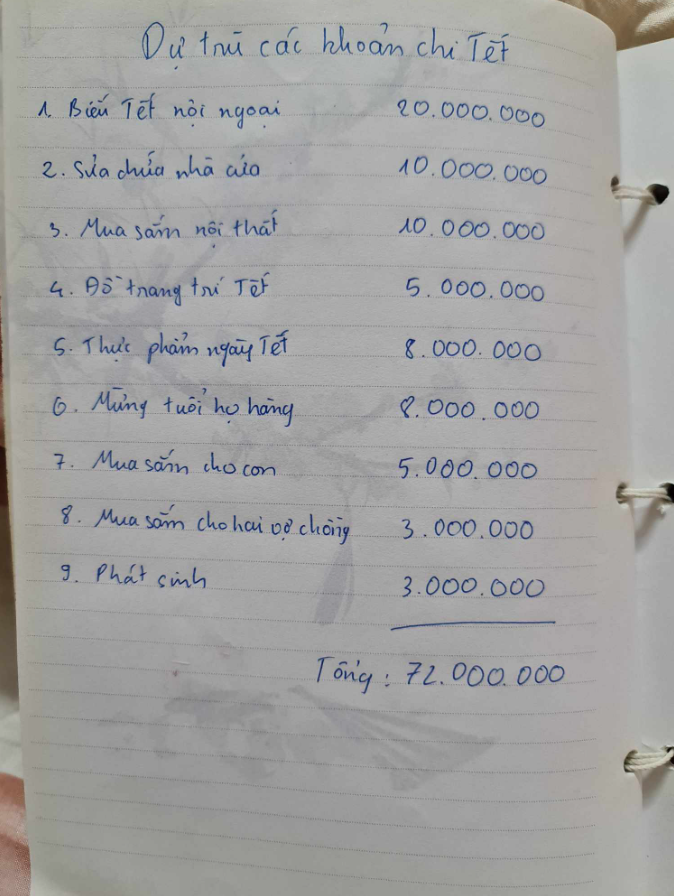 Dự trù các khoản chi Tết
1. Biếu Tết nội ngoại 20.000.000
2. Sửa chữa nhà cửa 10.000.000
3. Mua sắm nội thất 10.000.000
4. Đồ trang trí Tết 5.000.000
5. Thực phẩm ngày Tết 8.000.000
6. Mừng tuổi họ hàng 8.000.000
7. Mua sắm cho con 5.000.000
8. Mua sắm cho hai vợ chồng 3.000.000
9. Phát sinh 3.000.000
Tổng: 72.000.000